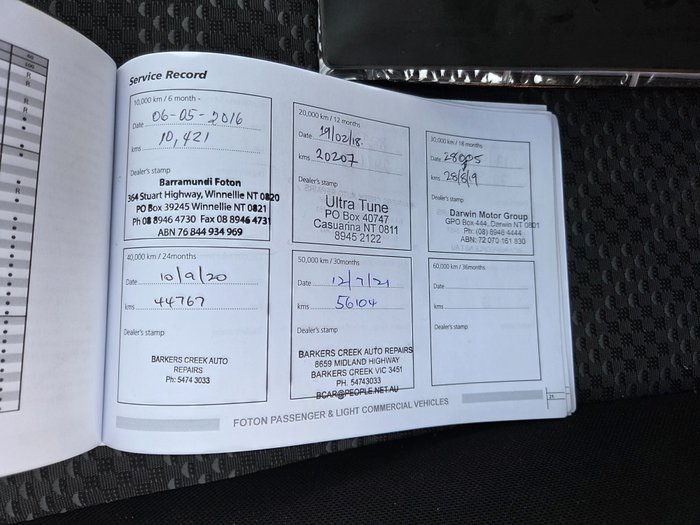 60
100
R
R
R
R
R
Service Record
10,000 km / 6 month
Date 06-05-2016
kms 10,421
Dealer's stamp
Barramundi Foton
364 Stuart Highway, Winnellie NT 0820
PO Box 39245 Winnellie NT 0821
Ph 08 8946 4730 Fax 08 8946 4731
ABN 76 844 934 969
20,000 km / 12 months
Date 19/02/18
kms 20207
Dealer's stamp
Ultra Tune
PO Box 40747
Casuarina NT 0811
8945 2122
30,000 km / 18 months
Date 28005
kms 28/8/9
Dealer's stamp
Darwin Motor Group
GPO Box 444, Darwin NT 0801
Ph: (08) 8946 4444
ABN: 72 070 161 830
40,000 km / 24months
Date 10/9/20
kms 44767
Dealer's stamp
BARKERS CREEK AUTO
REPAIRS
Ph: 5474 3033
50,000 km / 30months
Date 12/7/21
kms 56104
Dealer's stamp
BARKERS CREEK AUTO REPAIRS
8659 MIDLAND HIGHWAY
BARKERS CREEK VIC 3451
PH. 54743033
BCAR@PEOPLE.NET.AU
60,000 km / 36months
Date
kms
Dealer's stamp
FOTON PASSENGER & LIGHT COMMERCIAL VEHICLES